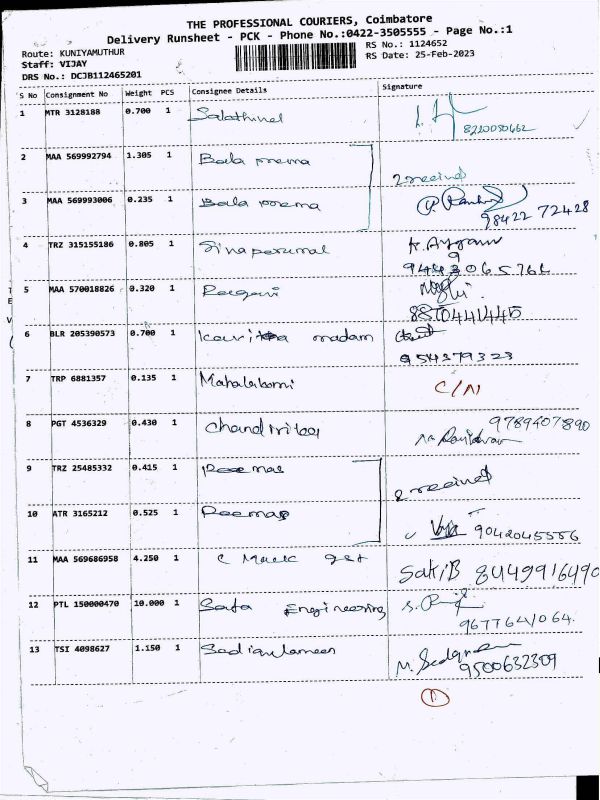 THE PROFESSIONAL COURIERS, Coimbatore
Delivery Runsheet - PCK - Phone No.:0422-3505555 - Page No.:1
Route: KUNIYAMUTHUR
RS No.: 1124652
Staff: VIJAY
RS Date: 25-Feb-2023
DRS No.: DCJB112465201
S No Consignment No Weight PCS Consignee Details Signature
1 MTR 3128188 0.700 1 Salathinal
8220050662
2 MAA 569992794 1.305 1 Bala prema
2 received
3 MAA 569993006 0.235 1 Bala prema
98422 72428
4 TRZ 315155186 0.805 1 Sivaperumal
5 MAA 570018826 0.320 1
8870441445
6 BLR 205390573 0.700 1 Kavitha madam
954379323
7 TRP 6881357 0.135 1 Mahalakshmi C/N
8 PGT 4536329 0.430 1 9789407890
9 TRZ 25485332 0.415 1
2 received
10 ATR 3165212 0.525 1
9042045556
11 MAA 569686958 4.250 1
SakiB 8449916490
12 PTL 150000470 10.000 1 Sata Engineering
9677641064.
13 TSI 4098627 1.150 1
9500632309